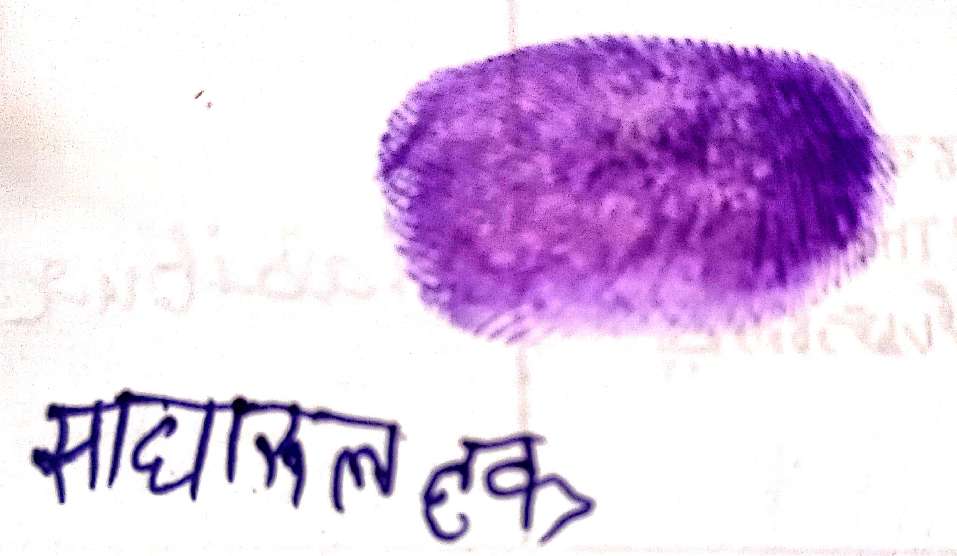 साधारुल हक